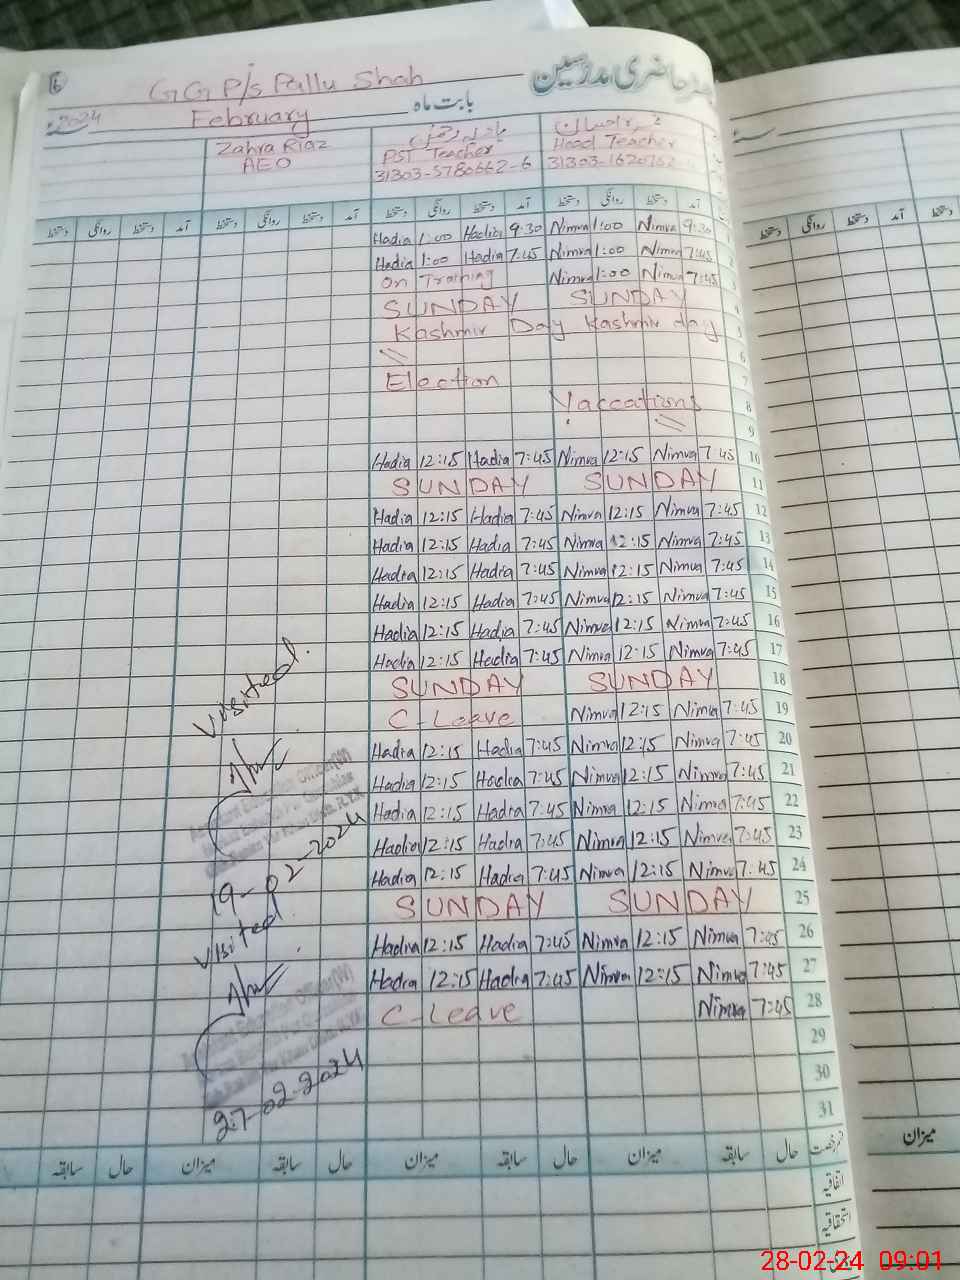 6 GGP/s Pallu Shah رجسٹر حاضری مدرسین
2024 February بابت ماہ
Zahra Riaz
AEO
PST Teacher Head Teacher
31303-5780662-6 31303-1620762
دستخط روانگی دستخط آمد دستخط روانگی دستخط آمد دستخط روانگی دستخط آمد دستخط روانگی دستخط آمد
Hadia 1:00 Hadia 9:30 Nimra 1:00 Nimra 9:30 1
Hadia 1:00 Hadia 7:45 Nimra 1:00 Nimra 7:45 2
On Training Nimra 1:00 Nimra 7:45 3
SUNDAY SUNDAY 4
Kashmir Day Kashmir day 5
6
Election 7
Vaccations 8
9
Hadia 12:15 Hadia 7:45 Nimra 12:15 Nimra 7:45 10
SUNDAY SUNDAY 11
Hadia 12:15 Hadia 7:45 Nimra 12:15 Nimra 7:45 12
Hadia 12:15 Hadia 7:45 Nimra 12:15 Nimra 7:45 13
Hadia 12:15 Hadia 7:45 Nimra 12:15 Nimra 7:45 14
Hadia 12:15 Hadia 7:45 Nimra 12:15 Nimra 7:45 15
Hadia 12:15 Hadia 7:45 Nimra 12:15 Nimra 7:45 16
Hadia 12:15 Hadia 7:45 Nimra 12:15 Nimra 7:45 17
SUNDAY SUNDAY 18
C-Leave Nimra 12:15 Nimra 7:45 19
Hadia 12:15 Hadia 7:45 Nimra 12:15 Nimra 7:45 20
Hadia 12:15 Hadia 7:45 Nimra 12:15 Nimra 7:45 21
Hadia 12:15 Hadia 7:45 Nimra 12:15 Nimra 7:45 22
Hadia 12:15 Hadia 7:45 Nimra 12:15 Nimra 7:45 23
Hadia 12:15 Hadia 7:45 Nimra 12:15 Nimra 7:45 24
SUNDAY SUNDAY 25
Hadia 12:15 Hadia 7:45 Nimra 12:15 Nimra 7:45 26
Hadia 12:15 Hadia 7:45 Nimra 12:15 Nimra 7:45 27
C-Leave Nimra 7:45 28
29
30
31
Visited
Assistant Education Officer (W)
19-02-2024
Visited
Assistant Education Officer (W)
27-02-2024
سابقہ حال میزان سابقہ حال میزان سابقہ حال میزان سابقہ حال قسم رخصت
اتفاقیہ
استحقاقیہ
دستخط روانگی دستخط آمد دستخط
میزان
28-02-24 09:01